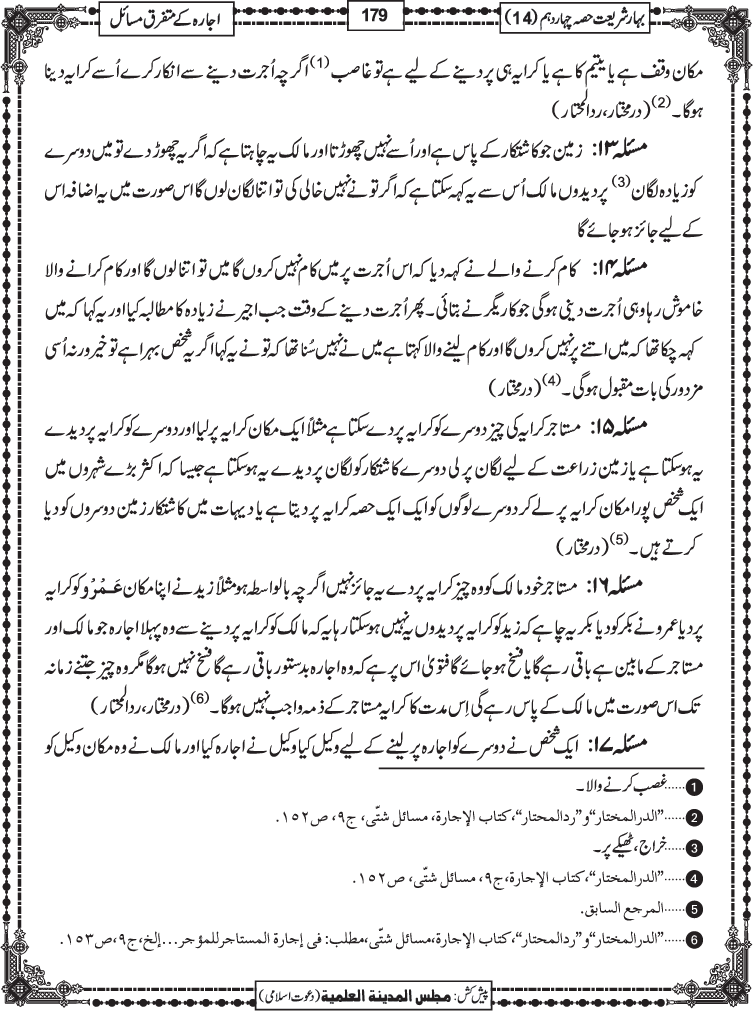 بہارِشریعت حصہ چہاردہم (14)
179
اجارہ کے متفرق مسائل
مکان وقف ہے یا یتیم کا ہے یا کرایہ ہی پر دینے کے لیے ہے تو غاصب (1) اگرچہ اُجرت دینے سے انکار کرے اُسے کرایہ دینا
ہوگا۔ (2) (درمختار، ردالمحتار)
مسئلہ ۱۳: زمین جو کاشتکار کے پاس ہے اور اُسے نہیں چھوڑتا اور مالک یہ چاہتا ہے کہ اگر یہ چھوڑ دے تو میں دوسرے
کو زیادہ لگان (3) پر دیدوں مالک اُس سے یہ کہہ سکتا ہے کہ اگر تو نے نہیں خالی کی تو اتنا لگان لوں گا اس صورت میں یہ اضافہ اس
کے لیے جائز ہو جائے گا
مسئلہ ۱۴: کام کرنے والے نے کہہ دیا کہ اس اُجرت پر میں کام نہیں کروں گا میں تو اتنا لوں گا اور کام کرانے والا
خاموش رہا وہی اُجرت دینی ہوگی جو کاریگر نے بتائی۔ پھر اُجرت دینے کے وقت جب اجیر نے زیادہ کا مطالبہ کیا اور یہ کہا کہ میں
کہہ چکا تھا کہ میں اتنے پر نہیں کروں گا اور کام لینے والا کہتا ہے میں نے نہیں سُنا تھا کہ تو نے یہ کہا اگر یہ شخص بہرا ہے تو خیر ورنہ اُسی
مزدور کی بات مقبول ہوگی۔ (4) (درمختار)
مسئلہ ۱۵: مستاجر کرایہ کی چیز دوسرے کو کرایہ پر دے سکتا ہے مثلاً ایک مکان کرایہ پر لیا اور دوسرے کو کرایہ پر دیدے
یہ ہو سکتا ہے یا زمین زراعت کے لیے لگان پر لی دوسرے کاشتکار کو لگان پر دیدے یہ ہو سکتا ہے جیسا کہ اکثر بڑے شہروں میں
ایک شخص پورا مکان کرایہ پر لے کر دوسرے لوگوں کو ایک ایک حصہ کرایہ پر دیتا ہے یا دیہات میں کاشتکار زمین دوسروں کو دیا
کرتے ہیں۔ (5) (درمختار)
مسئلہ ۱۶: مستاجر خود مالک کو وہ چیز کرایہ پر دے یہ جائز نہیں اگرچہ بالواسطہ ہو مثلاً زید نے اپنا مکان عَمْرْو کو کرایہ
پر دیا عمرو نے بکر کو دیا بکر یہ چاہے کہ زید کو کرایہ پر دیدوں یہ نہیں ہو سکتا رہا یہ کہ مالک کو کرایہ پر دینے سے وہ پہلا اجارہ جو مالک اور
مستاجر کے مابین ہے باقی رہے گا یا فسخ ہو جائے گا فتویٰ اس پر ہے کہ وہ اجارہ بدستور باقی رہے گا فسخ نہیں ہوگا مگر وہ چیز جتنے زمانہ
تک اس صورت میں مالک کے پاس رہے گی اِس مدت کا کرایہ مستاجر کے ذمہ واجب نہیں ہوگا۔ (6) (درمختار، ردالمحتار)
مسئلہ ۱۷: ایک شخص نے دوسرے کو اجارہ پر لینے کے لیے وکیل کیا وکیل نے اجارہ کیا اور مالک نے وہ مکان وکیل کو
1......غصب کرنے والا۔
2......”الدرالمختار“و”ردالمحتار“، كتاب الإجارة، مسائل شتّى، ج٩، ص١٥٢.
3......خراج، ٹھیکے پر۔
4......”الدرالمختار“، كتاب الإجارة، ج٩، مسائل شتّى، ص١٥٢.
5......المرجع السابق.
6......”الدرالمختار“و”ردالمحتار“، كتاب الإجارة، مسائل شتّى، مطلب: فى إجارة المستاجر للمؤجر...إلخ، ج٩، ص١٥٣.
پیش کش: مجلس المدينة العلمية (دعوت اسلامی)